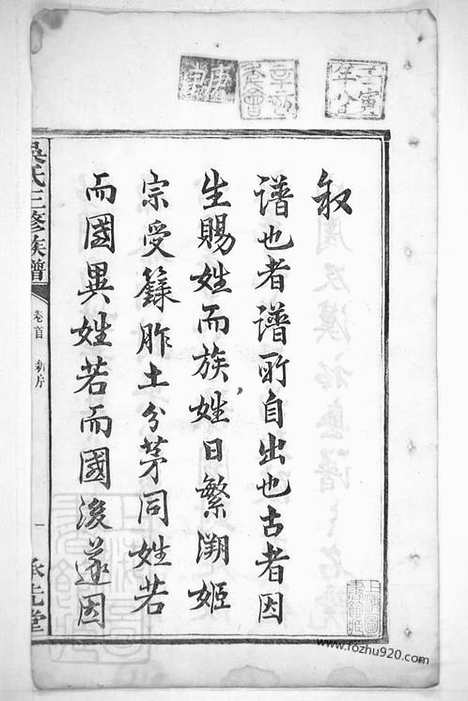 叙
譜也者譜所自出也古者因
生賜姓而族姓日繁溯姬
宗受籙胙土分茅同姓若
而國異姓若而國後遂因
吳氏三修族譜
卷首
承先堂
www.fozhu920.com